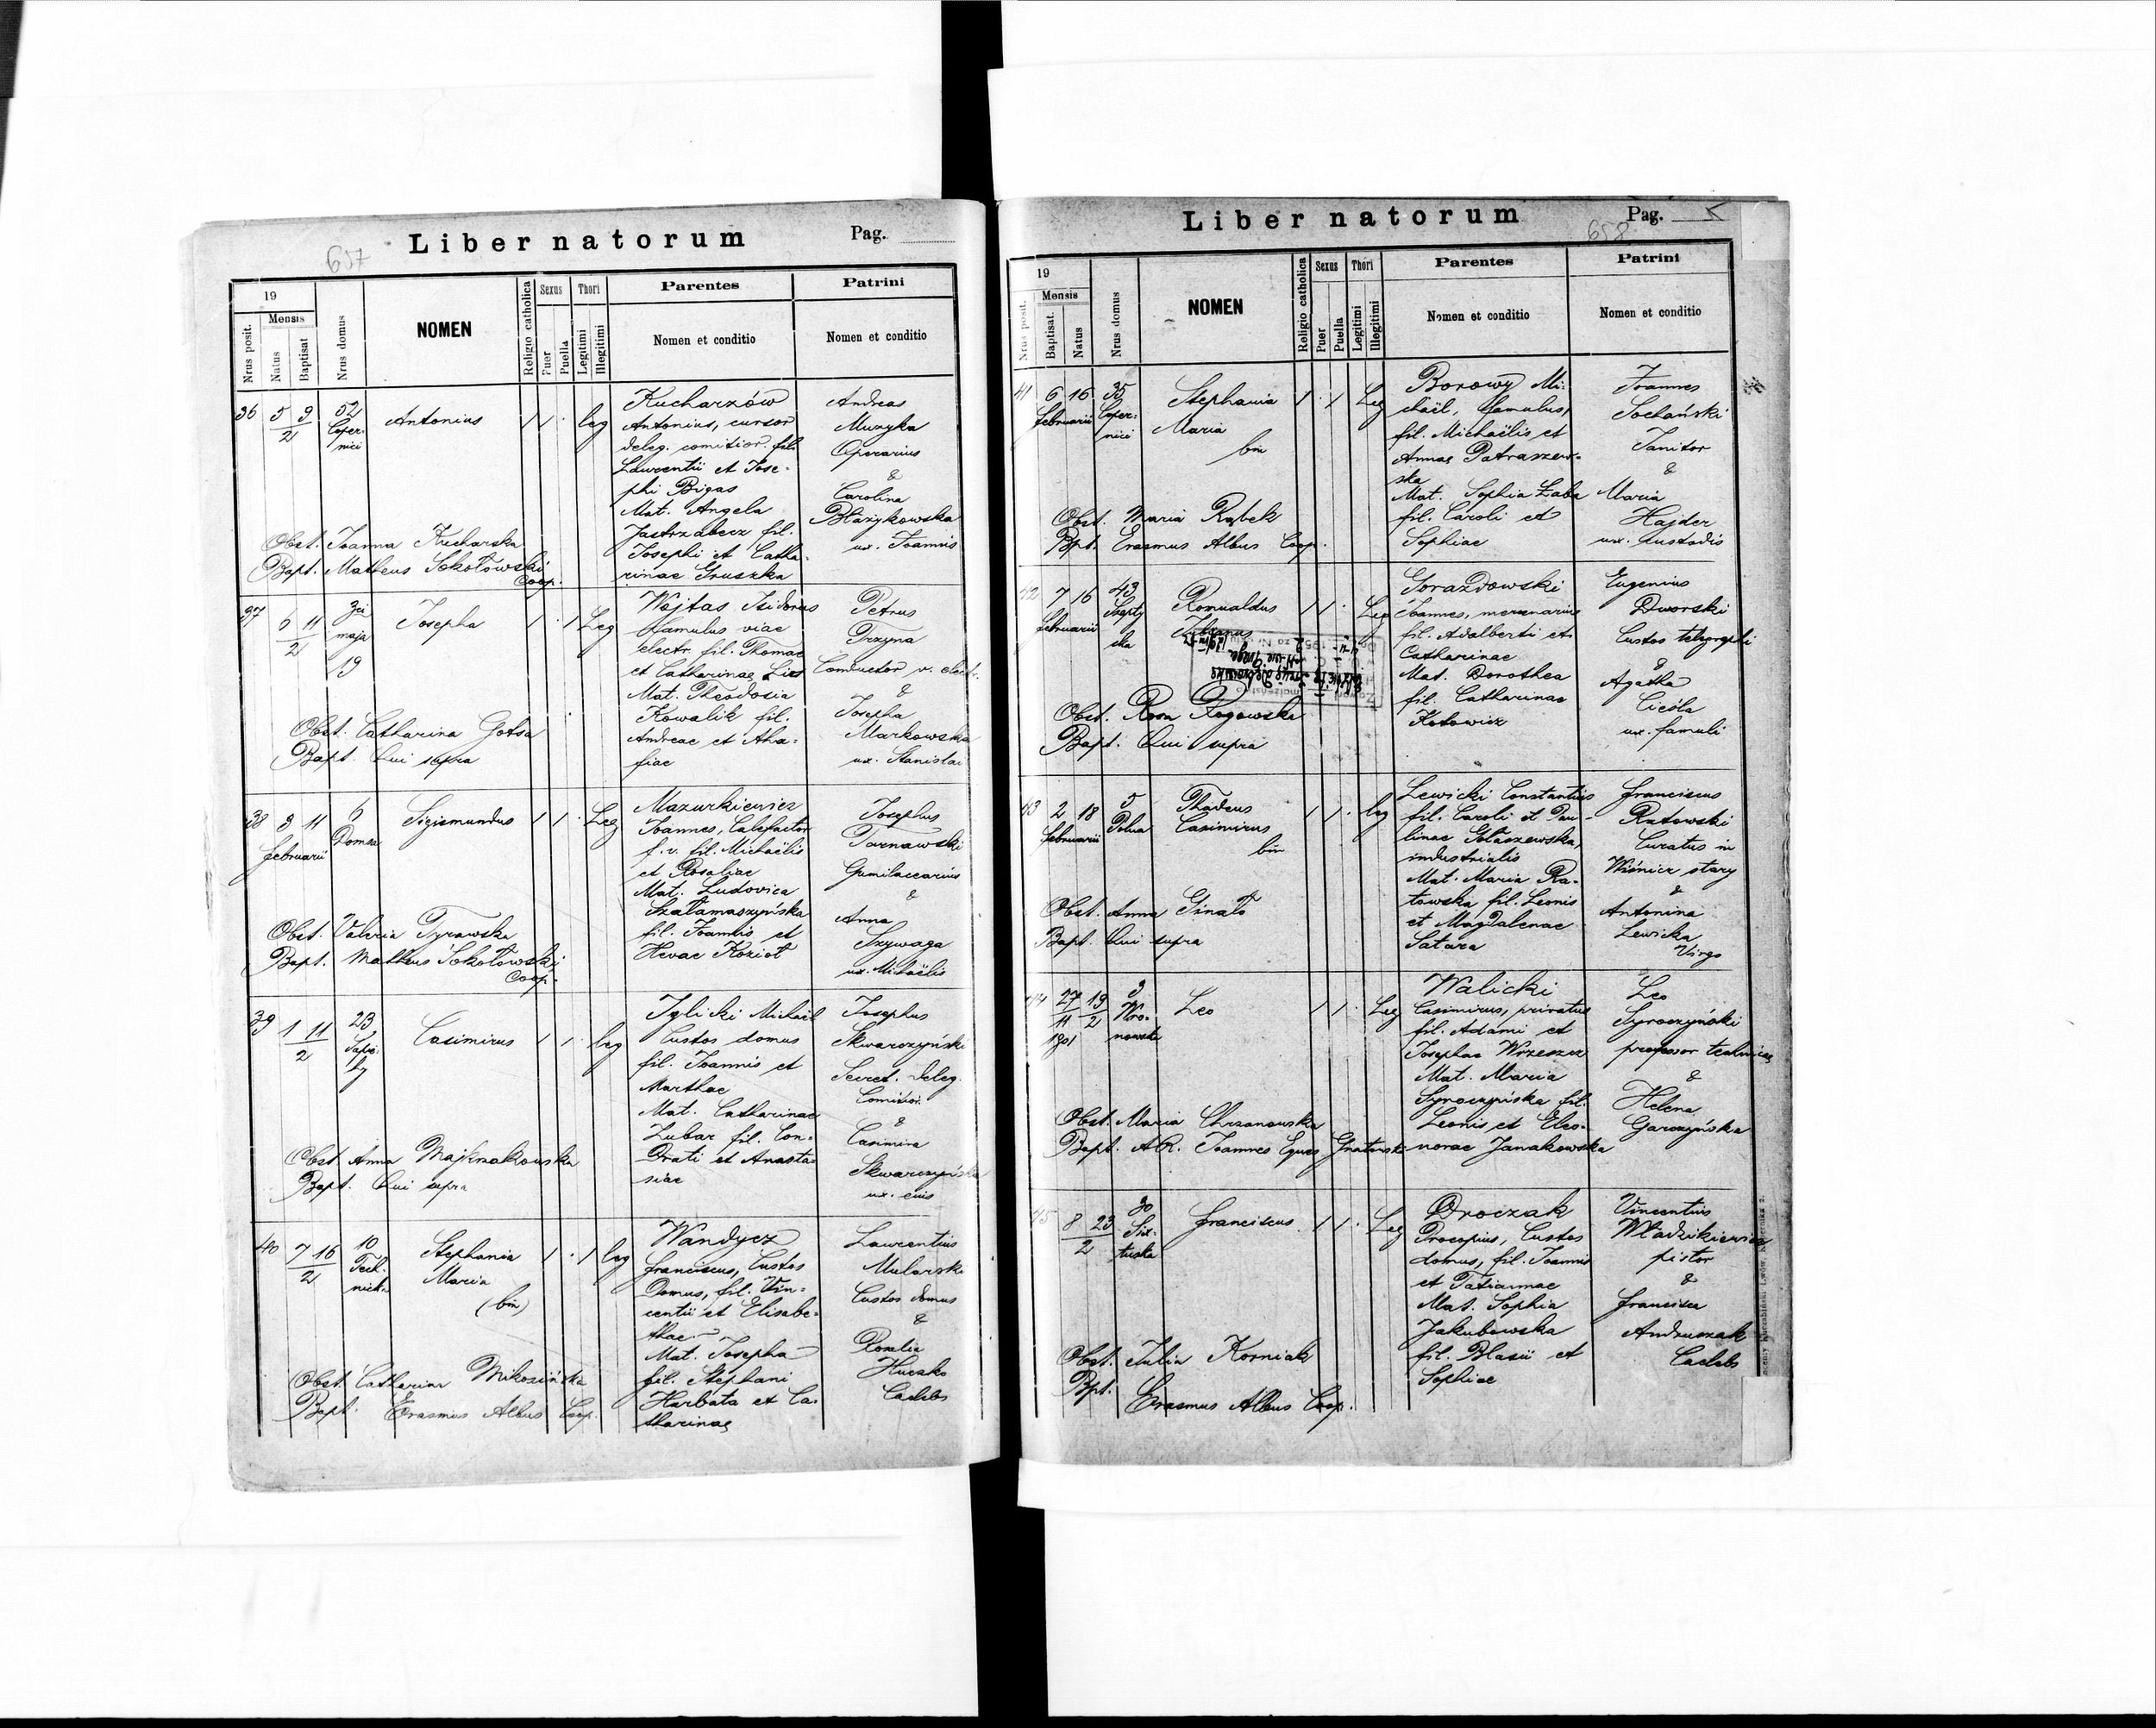 Liber natorum
Pag.
657
19
Mensis
Nrus posit.
Natus
Baptisat
Nrus domus
NOMEN
Religio catholica
Sexus
Puer
Puella
Thori
Legitimi
Illegitimi
Parentes
Nomen et conditio
Patrini
Nomen et conditio
36 5 9/2 52 Coper-nici
Antonius
1 1 · leg
Kucharzów
Antonius, cursor
deleg. comitior. fil.
Laurentii et Jose-
phi Bigas
Mat. Angela
Jastrzabecz fil.
Josephi et Catha-
rinae Gruszka
Andreas
Muzyka
Operarius
&
Carolina
Błażykowska
ux. Joannis
Obst. Joanna Kucharska
Bapt. Matheus Sokołowski
Coop.
37 6 11/2 3ci maja 19
Josepha
1 · 1 Leg
Wojtas Isidorus
famulus viae
electr. fil. Thomae
et Catharinae Lies
Mat. Theodosia
Kowalik fil.
Andreae et Aha-
fiae
Petrus
Trzyna
Conductor v. electr.
&
Josepha
Markowska
ux. Stanislai
Obst. Catharina Gotsa
Bapt. Qui supra
38 3 11 Februarii 6 Domsa
Sigismundus
1 1 · Leg
Mazurkiewicz
Joannes, Calefactor
f. v. fil. Michaëlis
et Rosaliae
Mat. Ludovica
Szałamaszyńska
fil. Joannis et
Hevae Kozioł
Josephus
Tarnawski
Gumilaccarius
&
Anna
Szywaga
ux. Michaëlis
Obst. Valeria Tyrawska
Bapt. Matheus Sokołowski
Coop.
39 1 11/2 23 Sapie-hy
Casimirus
1 1 · leg
Jylicki Michaël
Custos domus
fil. Joannis et
Marthae
Mat. Catharinae
Zubar fil. Con-
drati et Anasta-
siae
Josephus
Skwarczyński
Secret. deleg.
Comitior.
&
Casimira
Skwarczyńska
ux. eius
Obst. Anna Majkrzakowska
Bapt. Qui supra
40 7 16/2 10 Tech-nick.
Stephania
Maria
(bin)
1 · 1 leg
Wandycz
Franciscus, Custos
Domus, fil. Vin-
centii et Elisabe-
thae
Mat. Josepha
fil. Stephani
Harbata et Ca-
tharinae
Laurentius
Mularski
Custos domus
&
Rosalia
Huczko
Caelebs
Obst. Catharina Mikosińska
Bapt. Erasmus Albus Coop.
Liber natorum
Pag.
658
19
Mensis
Nrus posit.
Baptisat.
Natus
Nrus domus
NOMEN
Religio catholica
Sexus
Puer
Puella
Thori
Legitimi
Illegitimi
Parentes
Nomen et conditio
Patrini
Nomen et conditio
41 6 16 Februarii 35 Coper-nici
Stephania
Maria
bin
1 · 1 Leg
Borowy Mi-
chaël, famulus,
fil. Michaëlis et
Annae Patraszew-
ska
Mat. Sophia Łaba
fil. Caroli et
Sophiae
Joannes
Sochański
Janitor
&
Maria
Hajder
ux. custodis
Obst. Maria Rąbek
Bpt. Erasmus Albus Coop.
42 7 16 Februarii 43 Szepty-cka
Romualdus
1 1 · Leg
Gorazdowski
Joannes, mercenarius
fil. Adalberti et
Catharinae
Mat. Dorothea
fil. Catharinae
Kotowicz
Eugenius
Dworski
Custos telegraphi
&
Agatha
Cieśla
ux. famuli
Obst. Rosa Rogowska
Bapt. Qui supra
43 2 18 Februarii 5 Polna
Thadeus
Casimirus
bin
1 1 · leg
Lewicki Constantius
fil. Caroli et Pau-
linae Gołaszewska,
industrialis
Mat. Maria Ra-
towska fil. Leonis
et Magdalenae
Satara
Franciscus
Ratowski
Curatus in
Wiśnicz stary
&
Antonina
Lewicka
Virgo
Obst. Anna Ginałt
Bapt. Qui supra
44 27/11 1901 19/2 3 Wro-nowska
Leo
1 1 · Leg
Walicki
Casimirus, privatus
fil. Adami et
Josephae Wrzeszcz
Mat. Maria
Syroczyńska fil.
Leonis et Eleo-
norae Janakowska
Leo
Syroczyński
professor technices
&
Helena
Garczyńska
Obst. Maria Chrzanowska
Bapt. A.R. Joannes Eques Gnatowski
45 8 23/2 30 Six-tuska
Franciscus
1 1 · Leg
Droczak
Procopius, Custos
domus, fil. Joannis
et Tatiannae
Mat. Sophia
Jakubowska
fil. Blasii et
Sophiae
Vincentius
Władzikiewicz
pistor
&
Francisca
Andruszak
Caelebs
Obst. Julia Korniak
Bpt. Erasmus Albus Coop.